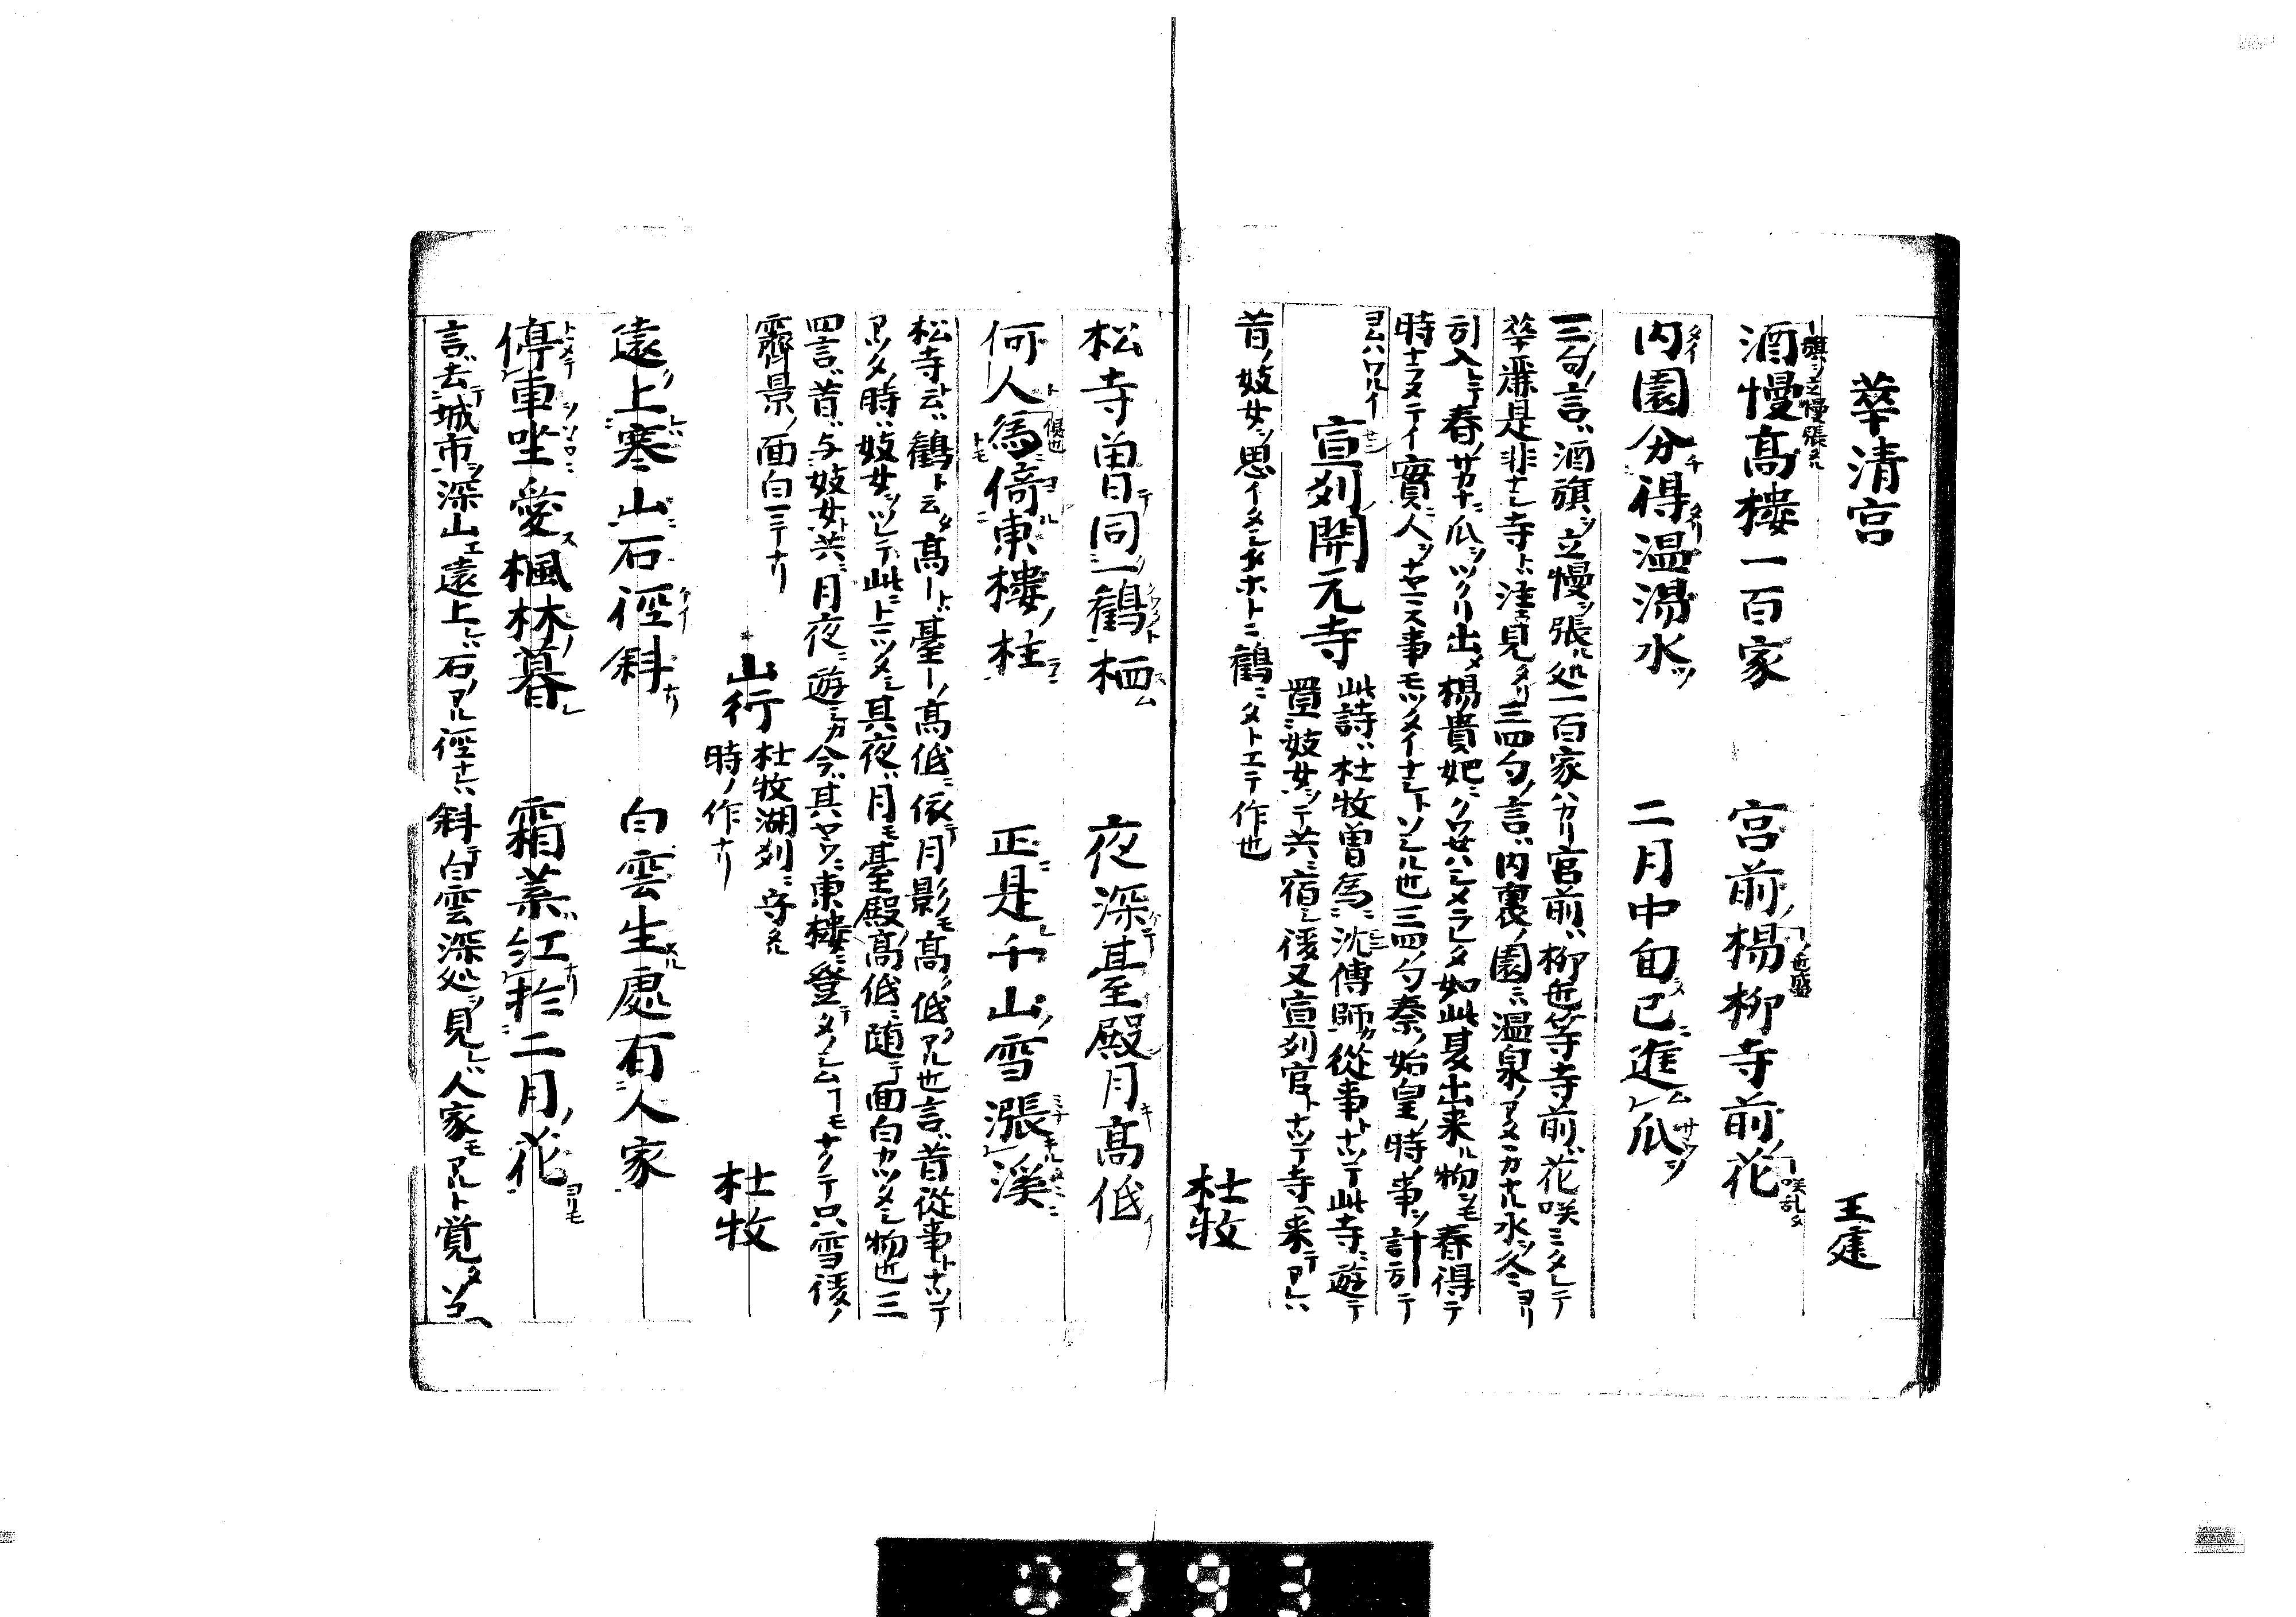 華清宮
王建
酒慢高樓一百家　宮前楊柳寺前花
内園分得温湯水　二月中旬已進瓜
一二句言ハ酒旗ヲ立慢ヲ張ル処一百家ハカリ宮前ハ柳也等寺前ハ花咲ミタレテ
華麗是非ナシ寺ト注ニ見タリ三四句ノ言ハ内裏ノ園ニハ温泉ノアタヽカナル水ヲ冬ヨリ
引入レテ春ノサカナニ瓜ヲツクリ出メ楊貴妃ニクワせハシメラレタ如此夏出来ル物ヲモ春得テ
時ナラヌテイ實ニ人ヲナヤマス事モツタイナシトソシル也三四ノ句秦ノ始皇ノ時ノ事ヲ計引テ
ヨムハワルイ
宣州開元寺
此詩ハ杜牧曽為ニ沈傳師カ從事トナツテ此寺ニ遊テ
置妓女ヲツテ共ニ宿シ後又宣州官トナツテ寺ヘ来テアレハ
昔ノ妓女ヲ思イタシタホトニ鶴ニタトエテ作也
杜牧
松寺曽同一鶴栖　夜深臺殿月高低
何人為倚東樓柱　正是千山雪漲溪
松寺ト云ハ鶴ト云タ高ートハ臺ーノ高低ニ依テ月影モ高ク低クアル也言ハ昔從事トナツテ
アツタ時ハ妓女ヲツレテ此ニトマツタシ其夜ハ月モ臺殿ノ高低ニ随テ面白カツタシ物也三
四言ハ昔ハ与妓女ト共ニ月夜ニ遊シカ今ハ其ヤウニ東樓ニ登テタノシムコトモナクテ只雪後ノ
霽景ノ面白ミテナリ
山行
杜牧湖州ニ守タル
時ノ作ナリ
杜牧
遠上寒山石徑斜　白雲生處有人家
停車坐愛楓林暮　霜葉紅於二月花
言ハ去テ城市ヲ深山エ遠上レハ石ノアル徑ナレハ斜テ白雲深処ヲ見レハ人家モアルト覚タソ
0393